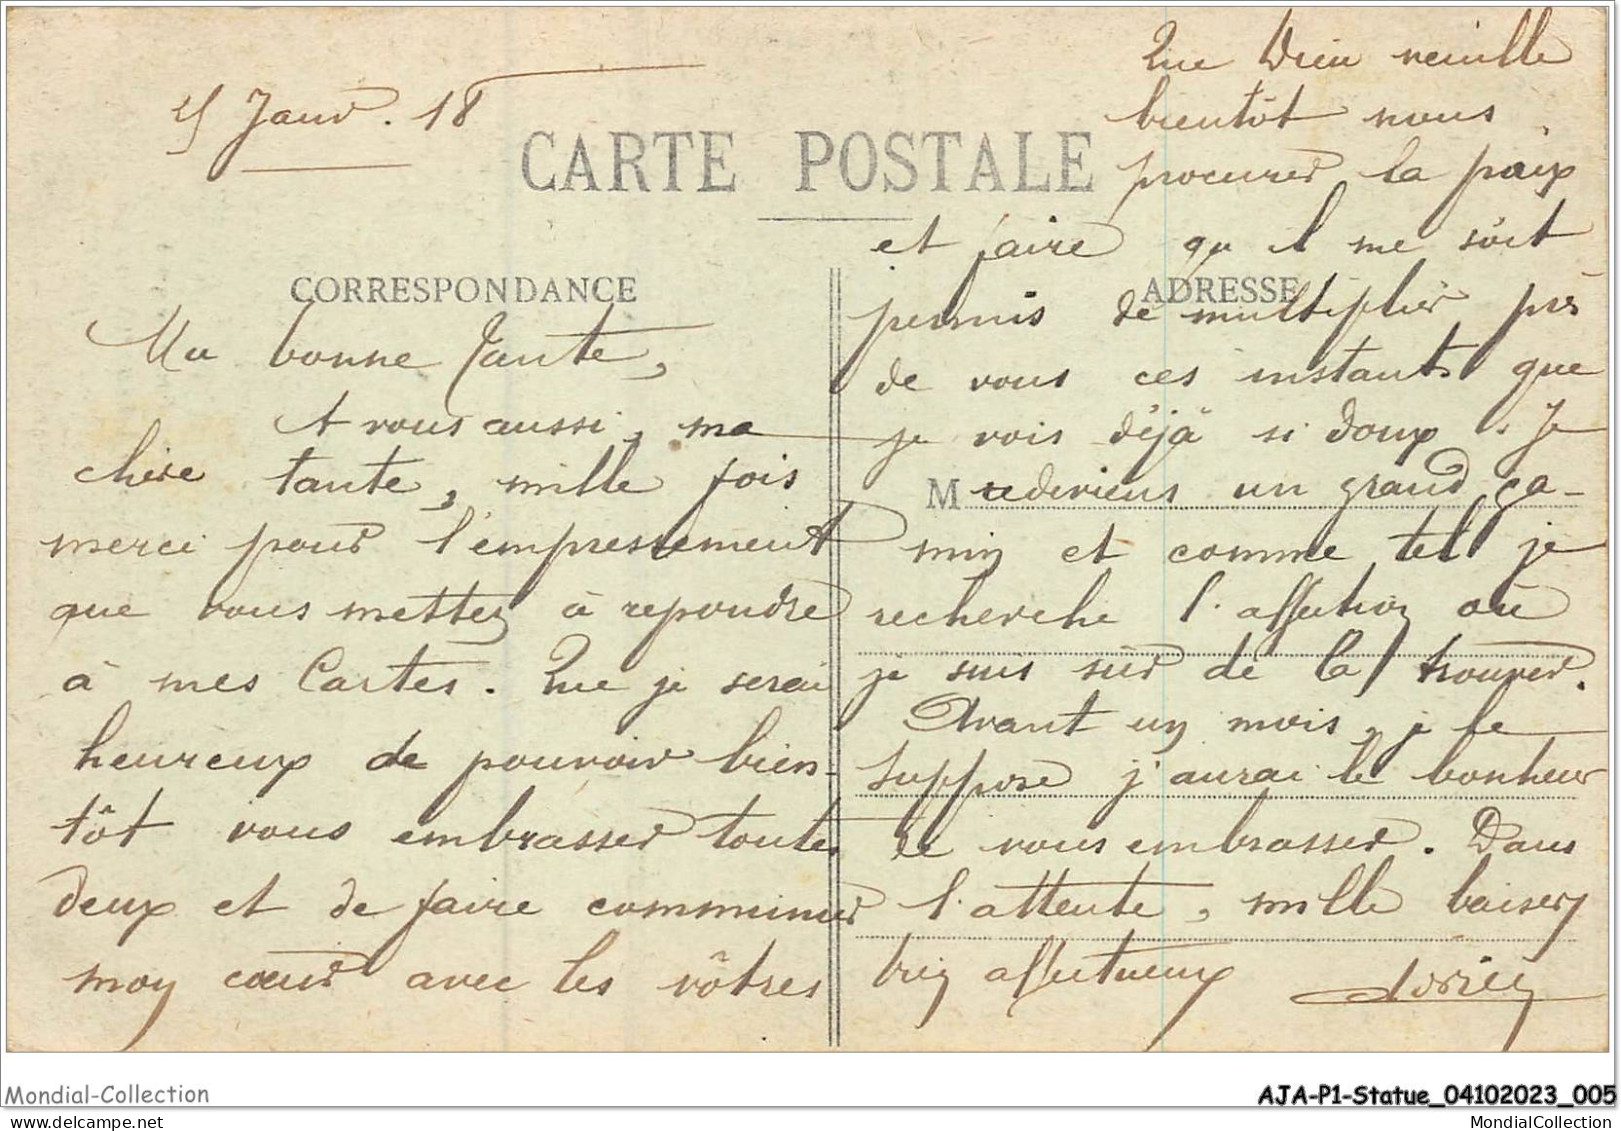 Janv. 18
CARTE POSTALE
CORRESPONDANCE
Ma bonne Tante,
A vous aussi, ma
chère tante, mille fois
merci pour l'empressement
que vous mettez à repondre
à mes Cartes. Que je serai
heureux de pouvoir bien-
tôt vous embrasser toutes
deux et de faire communier
moy cœur avec les vôtres
Que Dieu veuille
bientôt nous
procurer la paix
et faire qu il me soit
ADRESSE
permis de multiplier près
de vous ces instants que
je vois déjà si doux. Je
M redeviens un grand ga-
min et comme tel je
recherche l'affection où
je suis sûr de la trouver.
Avant un mois, je le
suppose j'aurai le bonheur
de vous embrasser. Dans
l'attente, mille baisers
affectueux
Mondial-Collection
AJA-P1-Statue_04102023_005
MondialCollection.com
MondialCollection